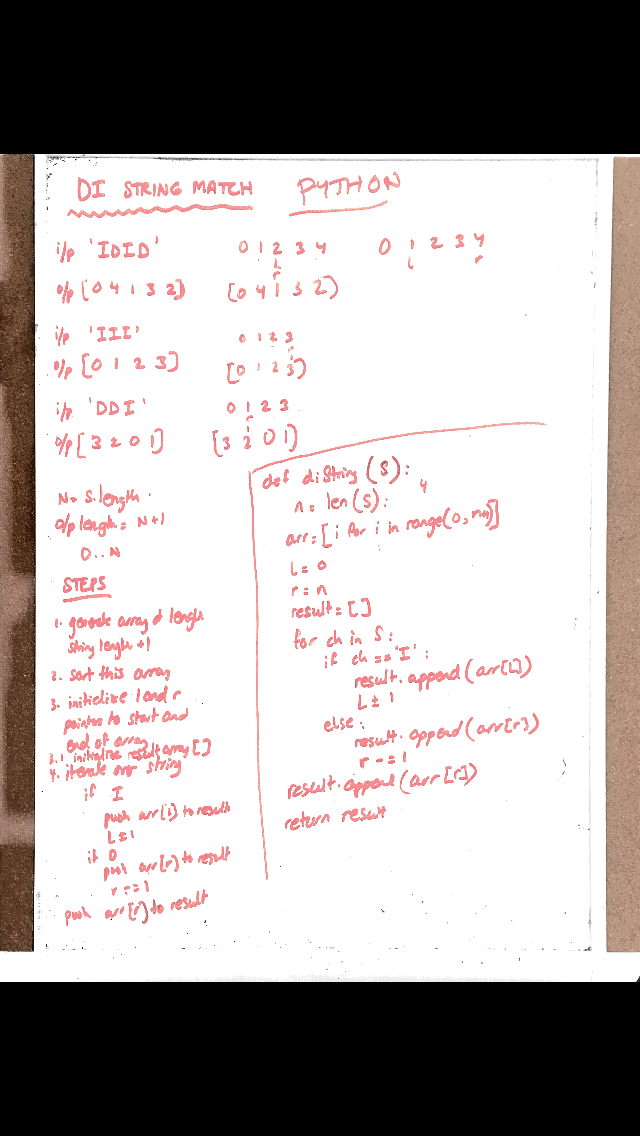 DI STRING MATCH PYTHON
i/p 'IDID' 0 1 2 3 4 0 1 2 3 4
L r
L r
o/p [0 4 1 3 2] [0 4 1 3 2)
i/p 'III' 0 1 2 3
o/p [0 1 2 3] [0 1 2 3)
i/p 'DDI' 0 1 2 3
o/p [3 2 0 1] [3 2 0 1)
N = S.length
o/p length = N+1
0..N
STEPS
1. generate array of length
string length +1
2. sort this array
3. initialize l and r
pointer to start and
end of array
3.1 initialize result array []
4. iterate over string
if I
push arr(i) to result
L = 1
if D
push arr(r) to result
r -= 1
push arr[r] to result
def diString(S):
4
n = len(S):
arr = [i for i in range(0, n+1)]
L = 0
r = n
result = []
for ch in S:
if ch == 'I':
result.append(arr[L])
L ± 1
else:
result.append(arr[r])
r -= 1
result.append(arr[r])
return result